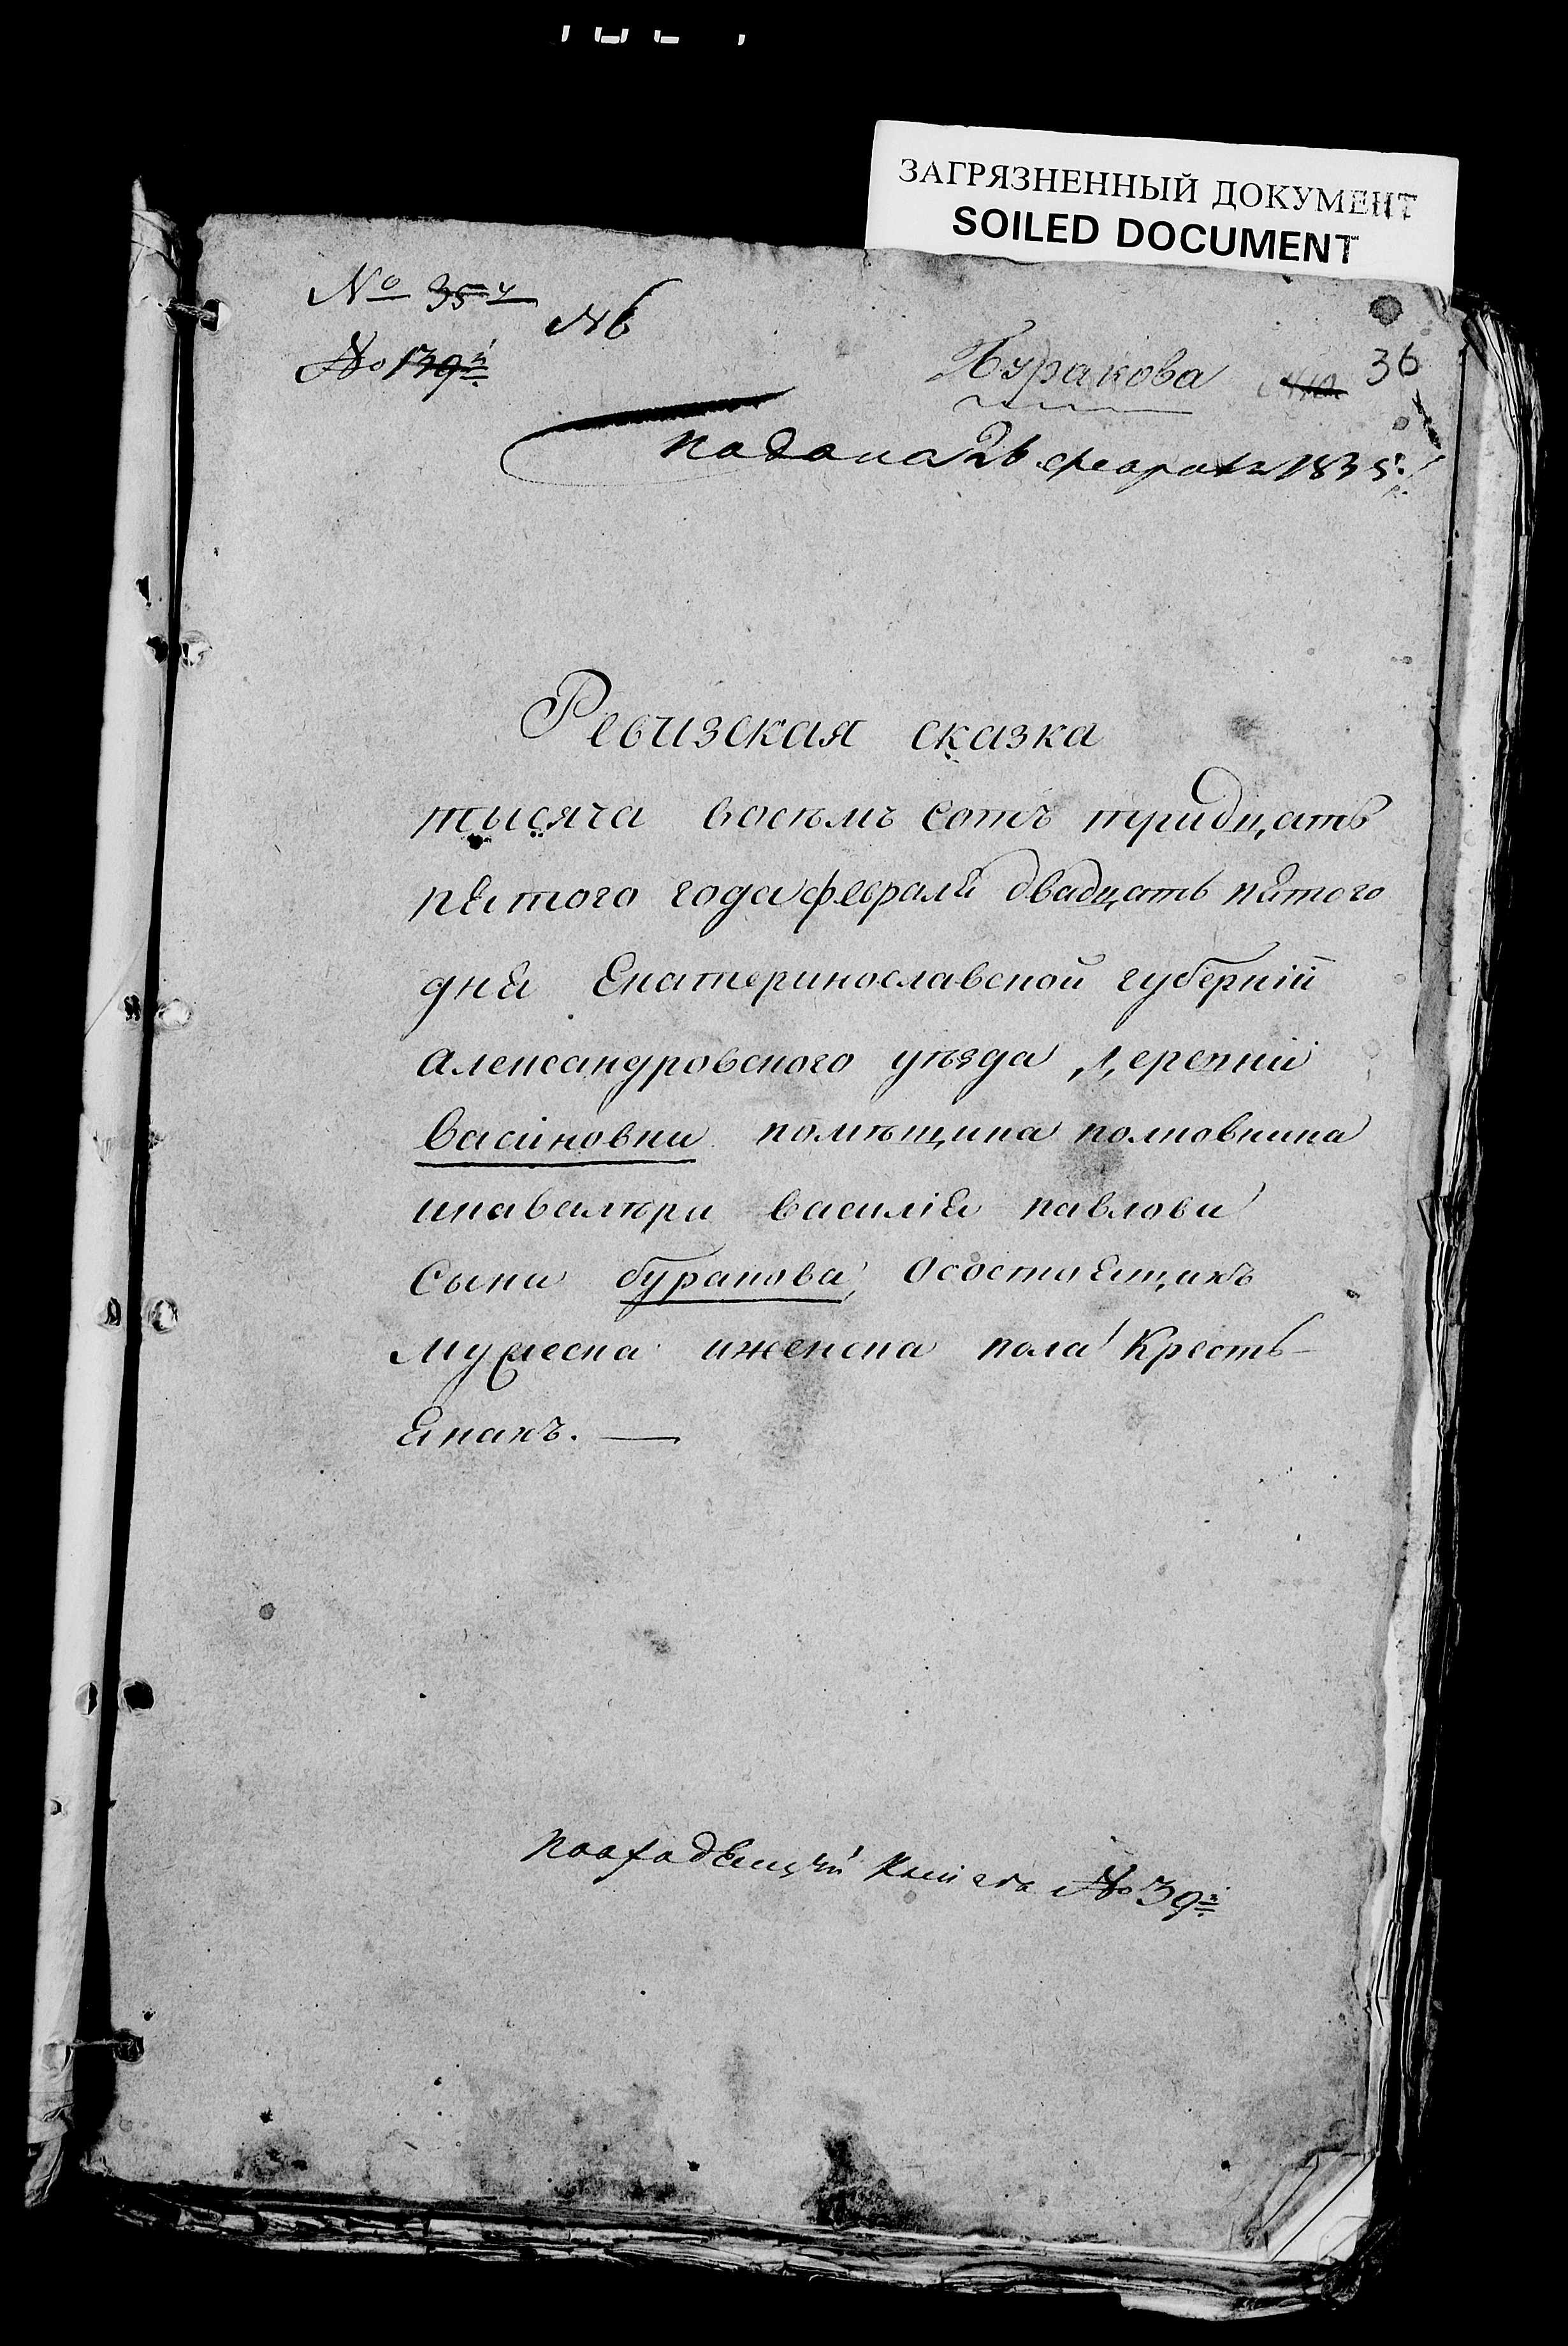 ЗАГРЯЗНЕННЫЙ ДОКУМЕНТ
SOILED DOCUMENT
№ 354
№ 6
№ 139й
Буракова
36
подана 26 февраля 1835:
Ревизская сказка
тысяча восѣмь сотъ тридцать
пятого года февраля двадцать пятого
дня Екатеринославской губернїй
александровского уѣзда деревни
васиновки помѣщика полковника
икавалѣра василія павлова
сына буракова, осостоящихъ
мужеска иженска пола Кресть-
янахъ. —
книга № 39й